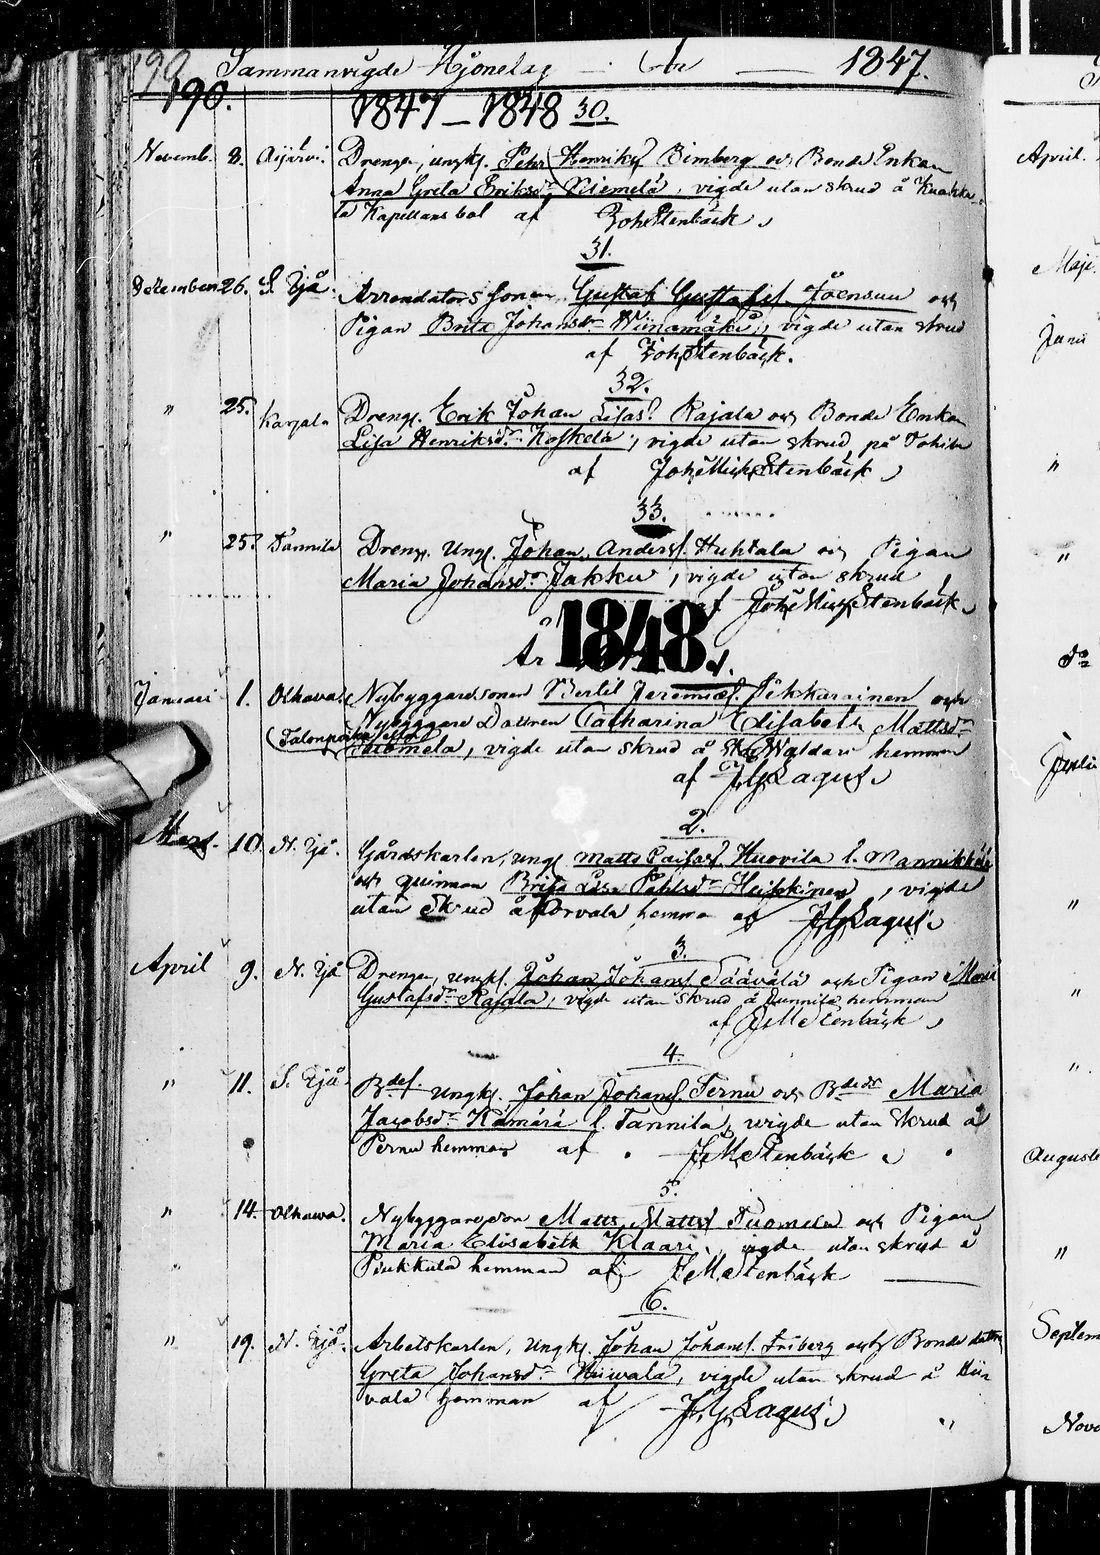 190 Sammanvigde Hjonelag År 1847.
190. 1847-1848
30.
Novemb. 8. Drengen, ungk. Pehr Henriks. Bimberg och Bonde Enkan
Anna Greta Eriksdr Niemelä, vigde utan skrud å
la Kapellans bol af Joh. Stenbäck
31.
December 26. S. Ijå. Arrendators Sonen, Gustaf Gustafss. Joensuu och
Pigan Brita Johansdr Wiinamäki, vigde utan skrud
af Joh. Stenbäck.
32.
" 25. Karjala Drengn. Erik Johan Rajala och Bonde Enkan
Lisa Henriksdr Koskela, vigde utan skrud, på
af Joh. Mich. Stenbäck
33.
" 25. Tannila Dreng. Ungk. Johan Anderss. Huhtala och Pigan
Maria Johansdr Jakku, vigde utan skrud,
af Joh. Mich. Stenbäck
År 1848.
1.
Januari 1. Olhava. Nybyggaresonen Bertil Jeremiæs. Pikkarainen och
Nybyggare Dottren Catharina Elisabeth Mattsdr
Tuomela, vigde utan skrud å hemman
af J.G. Lagus
2.
Mars. 10. N. Ijå. Gårdskarlen, ungk. Matts Huovila l.
och quinnan Brita Lisa Påhlsdr Heikkinen, vigde
utan Skrud å hemman af J.G. Lagus
3.
April 9. N. Ijå Drengen, ungk. Johan Johans. Säävälä och Pigan Maria
Gustafsdr Rajala, vigde utan skrud å hemman
af J.M. Stenbäck
4.
" 11. S. Ijå. Bdes. ungk. Johan Johans. Pernu och Bdedr Maria
Jacobsdr Hämärä l. Tannila, vigde utan skrud å
Pernu hemman af J.M. Stenbäck
5.
" 14. Olhava. Nybyggareson Matts Matts. Tuomela och Pigan
Maria Elisabeth Klaari, vigde utan skrud å
hemman af J.M. Stenbäck
6.
" 19. N. Ijå. Arbetskarlen, Ungk. Johan Johans. Friberg och Bonde dottren
Greta Johansdr Hiivala, vigde utan skrud å Hii-
vala hemman af J.G. Lagus
April.
Maji.
Juni
"
"
Do
Juli
"
"
"
Augusti
"
Septem
Nove